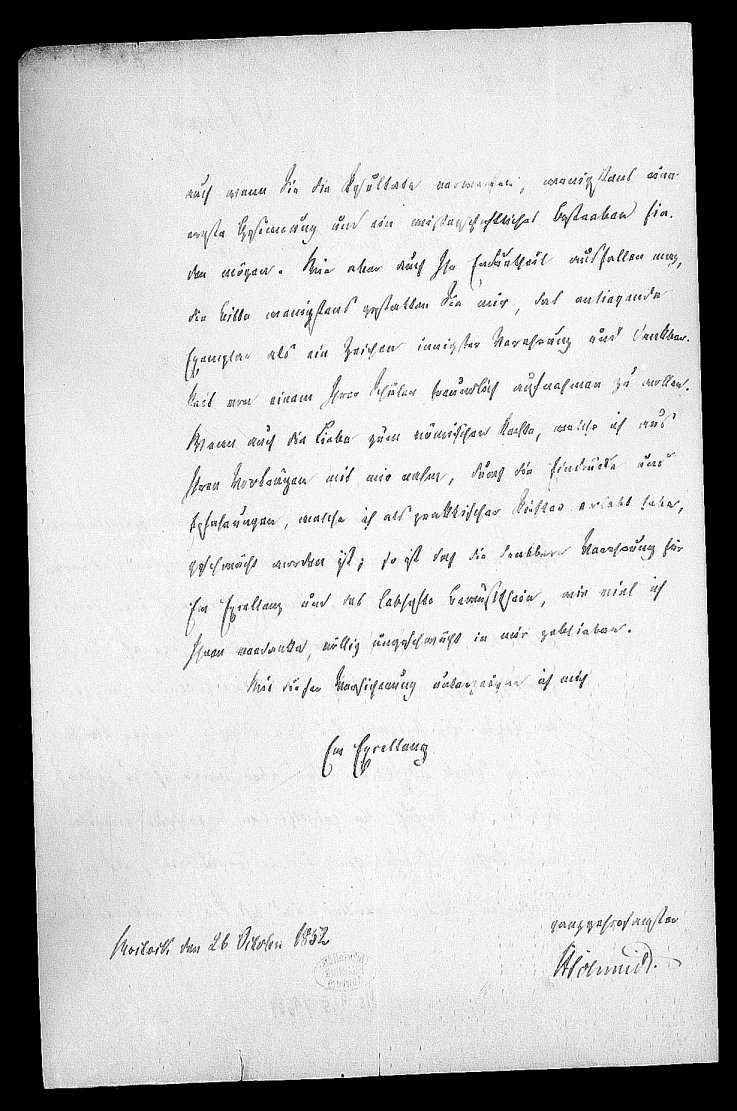 auch wenn Sie die Resultate verwerfen, wenigstens eine
ernste Gesinnung und ein wissenschaftliches Bestreben fin-
den mögen. Wie aber auch Ihr Endurtheil ausfallen mag,
die Bitte wenigstens gestatten Sie mir, das anliegende
Exemplar als ein Zeichen innigster Verehrung und Dankbar-
keit von einem Ihrer Schüler freundlich aufnehmen zu wollen.
Wenn auch die Liebe zum römischen Rechte, welche ich aus
Ihren Vorträgen mit mir nahm, durch die Eindrücke und
Erfahrungen, welche ich als praktischer Richter erlebt habe,
geschwächt worden ist; so ist doch die dankbare Verehrung für
Ew Excellenz und das lebhafte Bewußtsein, wie viel ich
Ihnen verdanke, völlig ungeschwächt in mir geblieben.
Mit dieser Versicherung unterzeichne ich mich
Ew Excellenz
den 26 October 1852
ganz gehorsamster
Schmidt.